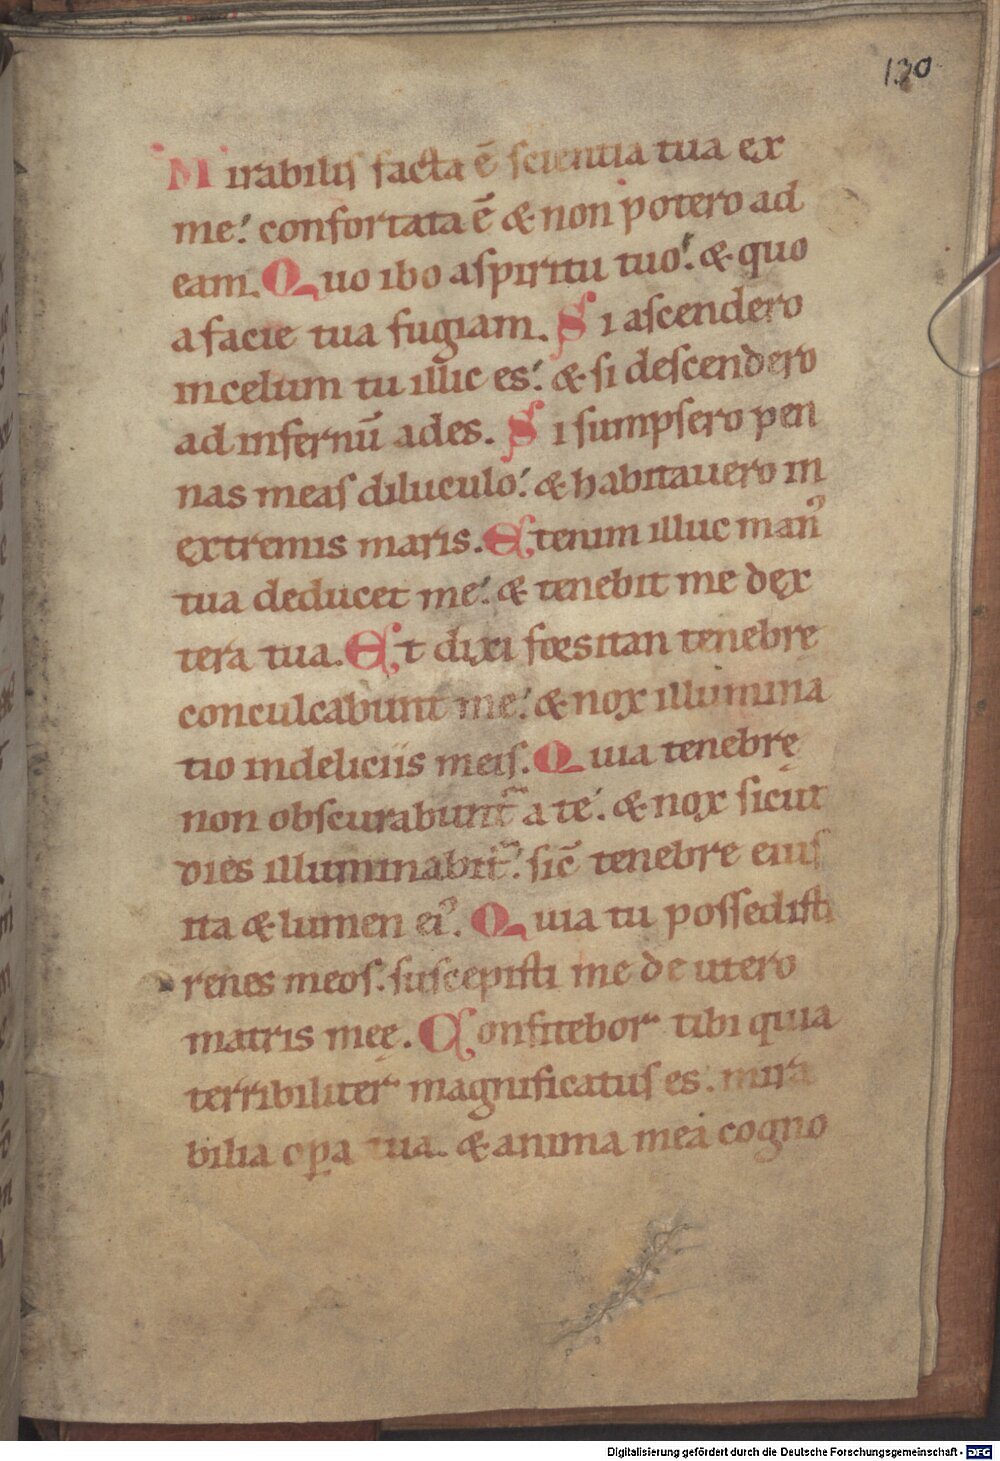 130
Mirabilis facta ē scientia tua ex
me: confortata ē & non potero ad
eam. Quo ibo aspiritu tuo: & quo
afacie tua fugiam. Si ascendero
incelum tu illic es: & si descendero
ad infernū ades. Si sumpsero pen
nas meas diluculo: & habitauero in
extremis maris. Etenim illuc man᷒
tua deducet me: & tenebit me dex
tera tua. Et dixi forsitan tenebrę
conculcabunt me: & nox illumina
tio indeliciis meis. Quia tenebrę
non obscurabunt᷑ a te: & nox sicut
dies illuminabit᷑: sic̄ tenebre eius
ita & lumen ei᷒. Quia tu possedisti
renes meos. suscepisti me de utero
matris meę. Confitebor tibi quia
terribiliter magnificatus es: mira
bilia oꝑa tua. & anima mea cogno
Digitalisierung gefördert durch die Deutsche Forschungsgemeinschaft - DFG